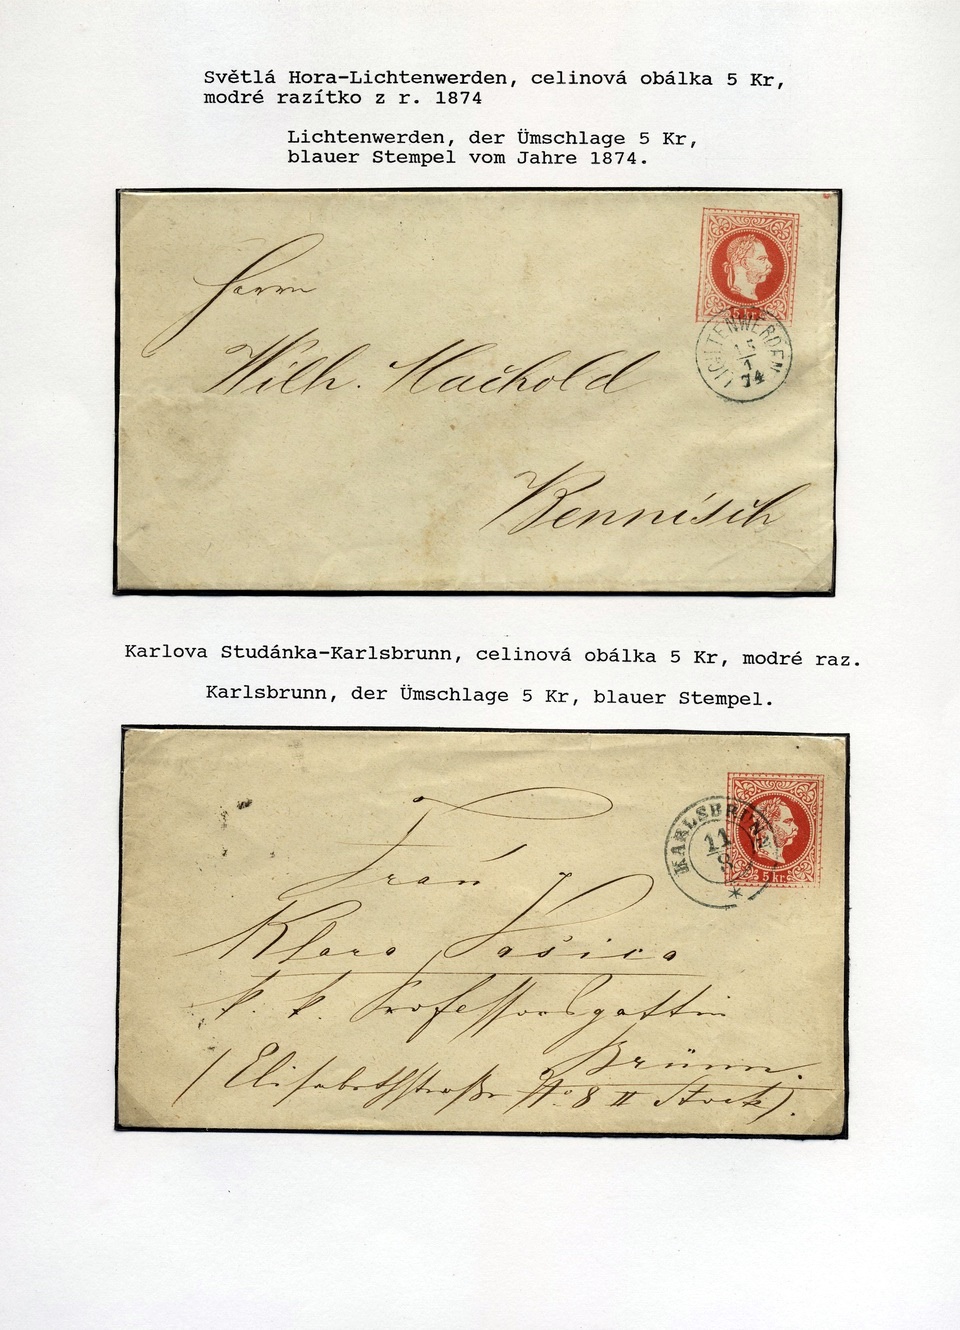 Světlá Hora-Lichtenwerden, celinová obálka 5 Kr,
modré razítko z r. 1874
Lichtenwerden, der Ümschlage 5 Kr,
blauer Stempel vom Jahre 1874.
5 kr.
LICHTENWERDEN
15
1
74
Herrn
Wilh. Machold
Bennisch
Karlova Studánka-Karlsbrunn, celinová obálka 5 Kr, modré raz.
Karlsbrunn, der Ümschlage 5 Kr, blauer Stempel.
5 kr.
KARLSBRUNN
11
Frau
Klara Vašica
k. k. Professorsgattin
Brünn.
(Elisabethstraße No 8 II Stock).